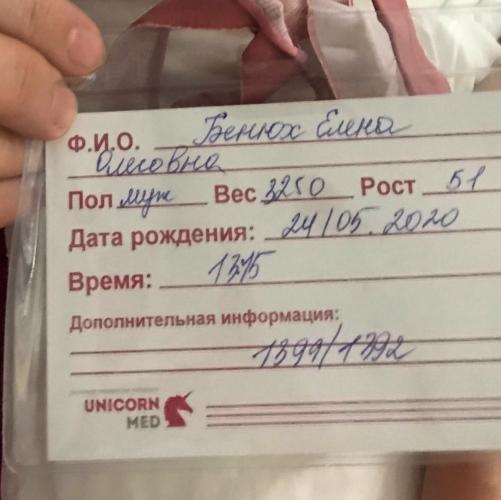 Ф.И.О. Бенюх Елена
Олеговна
Пол муж Вес 3250 Рост 51
Дата рождения: 24/05.2020
Время: 13 45
Дополнительная информация:
1399/1392
UNICORN
MED